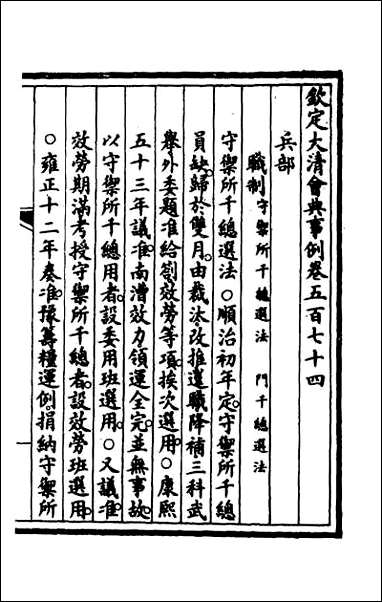 欽定大清會典事例卷五百七十四
兵部
職制守禦所千總選法　門千總選法
守禦所千總選法○順治初年定。守禦所千總
員缺。歸於雙月。由裁汰。改推還職。降補。三科武
舉。外委題准給劄效勞等項。挨次選用。○康熙
五十三年議准。南漕效力領運全完。並無事故。
以守禦所千總用者。設委用班選用。○又議准。
效勞期滿。考授守禦所千總者。設效勞班選用。
○雍正十二年奏准。豫籌糧運例。捐納守禦所